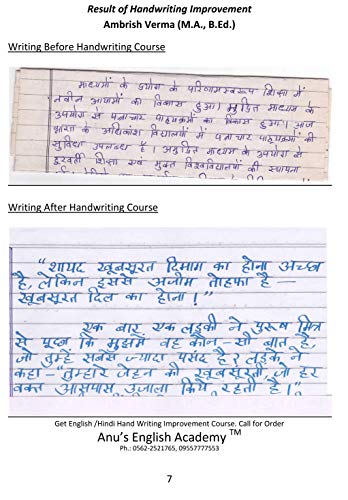 Result of Handwriting Improvement
Ambrish Verma (M.A., B.Ed.)
Writing Before Handwriting Course
माध्यमों के उपयोग के परिणामस्वरूप शिक्षा में
नवीन आयामों का विकास हुआ। मुद्रित माध्यम के
उपयोग से पत्राचार पाठ्यक्रमों का विकास हुआ। आज
भारत के अधिकांश विद्यालयों में पत्राचार पाठ्यक्रमों की
सुविधा उपलब्ध है। अमुद्रित माध्यम के उपयोग से
दूरवर्ती शिक्षा एवं मुक्त विश्वविद्यालयों की स्थापना
Writing After Handwriting Course
"शायद खूबसूरत दिमाग का होना अच्छा
है, लेकिन इससे अजीम तोहफा है –
खूबसूरत दिल का होना!"
एक बार एक लड़की ने पुरूष मित्र
से पूछा कि मुझमें वह कौन-सी बात है,
जो तुम्हें सबसे ज्यादा पसंद है? लड़के ने
कहा –"तुम्हारे जेहन की खूबसूरती, जो हर
वक्त आसपास उजाला किये रहती है।"
Get English /Hindi Hand Writing Improvement Course. Call for Order
Anu's English Academy TM
Ph.: 0562-2521765, 09557777553
7